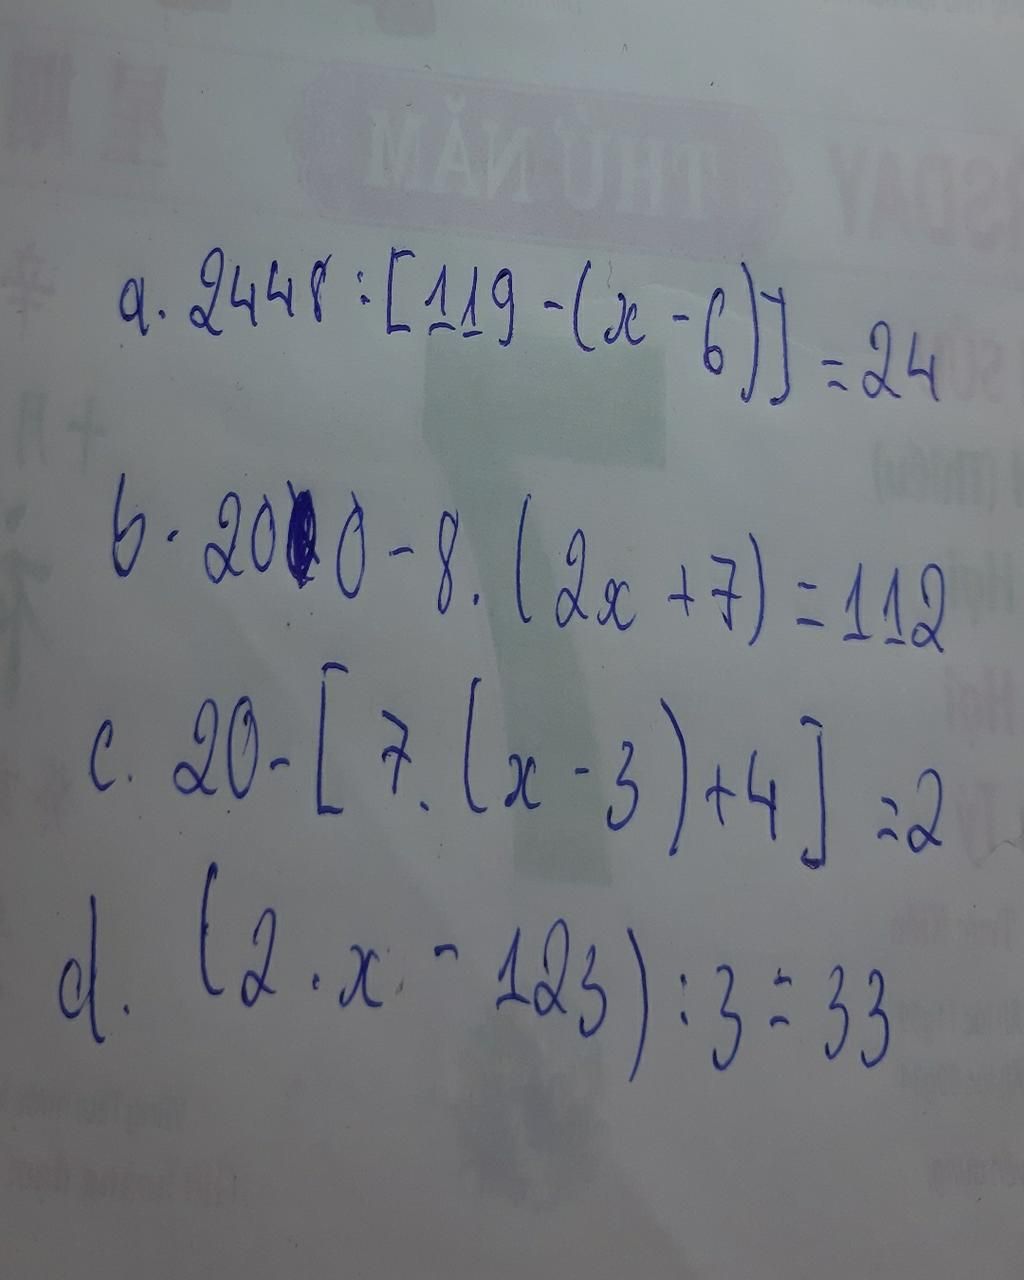 a. 2448 : [119 - (x - 6)] = 24
b. 200 - 8. (2x + 7) = 112
c. 20 - [7. (x - 3) + 4] = 2
d. (2 . x - 123) : 3 = 33